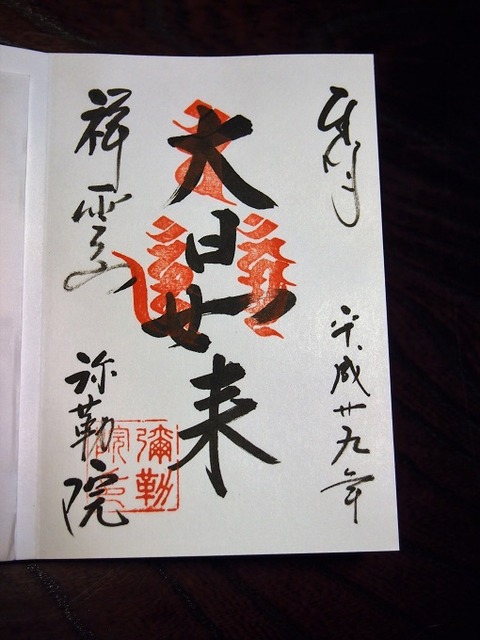 奉拝
平成廿九年
大日如来
祥雲山
弥勒院
彌勒
院印